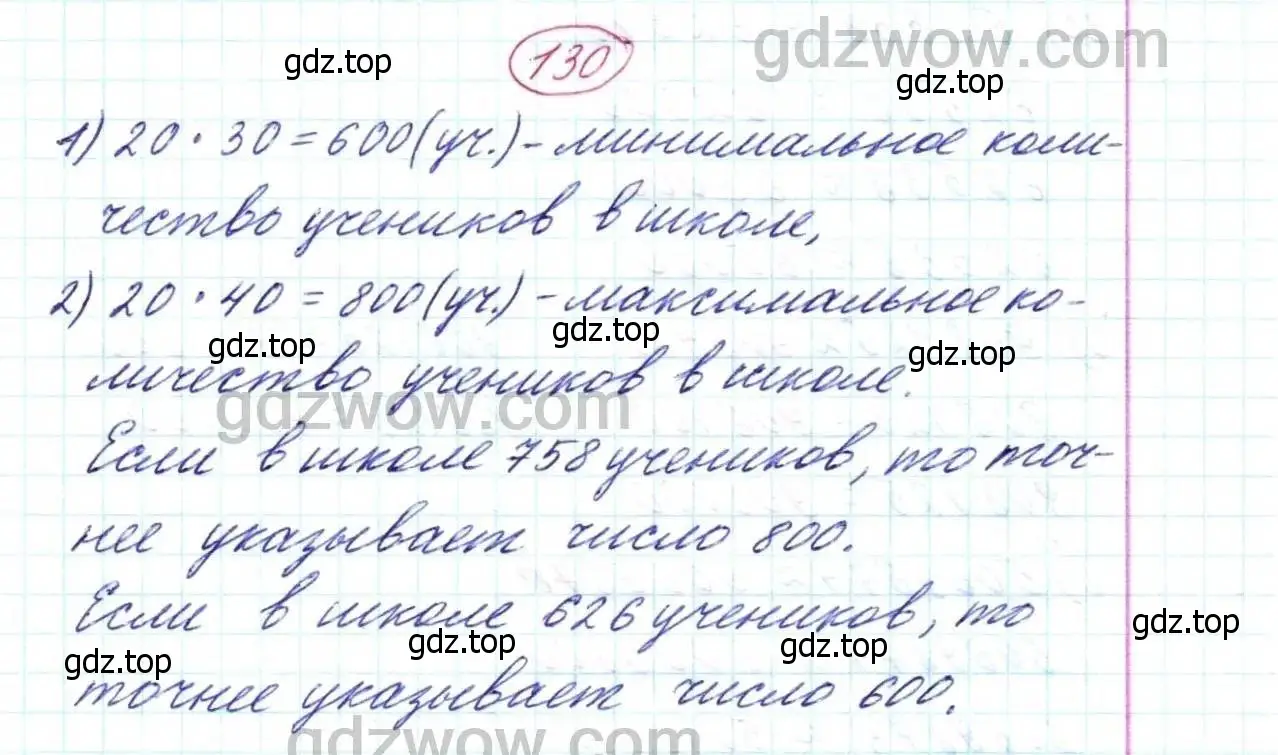 gdzwow.com
130
gdz.top
gdz.top
1) 20 · 30 = 600 (уч.) - минимальное коли-
чество учеников в школе,
2) 20 · 40 = 800 (уч.) - максимальное ко-
gdz.top
gdz.top
gdz.top
личество учеников в школе.
gdzwow.com
Если в школе 758 учеников, то точ-
нее указывает число 800.
Если в школе 626 учеников, то
gdz.top
gdz.top
gdz.top
gdz.top
точнее указывает число 600.
gdzwow.com